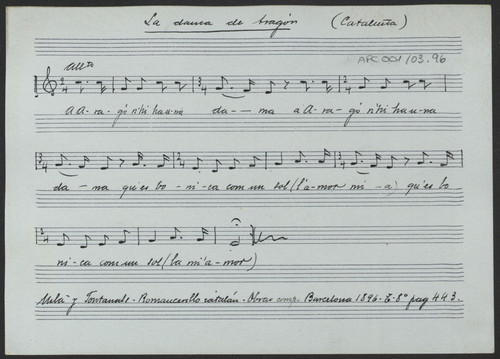 La dama de Aragón (Cataluña)
APC 001/03.96
All.to
a A-ra- gó n'hi ha u-na da- - ma a A-ra- gó n'hi ha u-na
da - ma qu'es bo - ni-ca com un sol (l'a-mor mi - a) qu'es bo
ni-ca com un sol (la mi'a-mor)
Milá y Fontanals - Romancerillo catalán - Obras comp. Barcelona 1896 - T-8º pag 443.